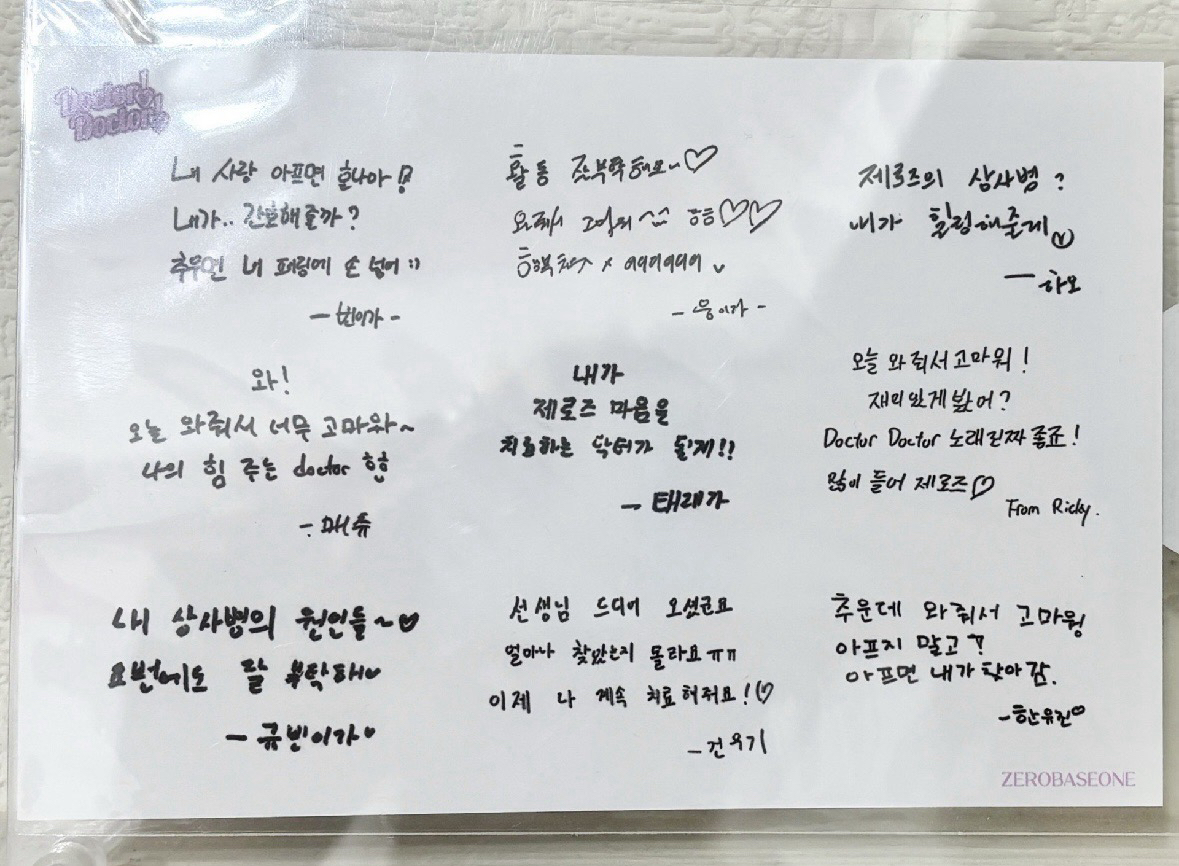 Doctor!
Doctor!
내 사랑 아프면 혼나아!?
내가.. 간호해줄까?
추우면 내 패딩에 손 넣어 :)
- 빈이가 -
활동 잘부탁해요~♡
와줘서 고맙의 ^^ ㅎㅎ♡♡
행복 x 9999999
- 웅이가 -
제로즈의 상사병?
내가 힐링해줄게♡
- 하오
와!
오늘 와줘서 너무 고마워~
나의 힘 주는 doctor 헿
- 매튜
내가
제로즈 마음을
치료하는 닥터가 될게!!
- 태래가
오늘 와줘서 고마워!
재미있게 봤어?
Doctor Doctor 노래 진짜 좋죠!
많이 들어 제로즈♡
From Ricky.
내 상사병의 원인들~♡
요번에도 잘 부탁해♡
- 규빈이가♡
선생님 드디어 오셨군요
얼마나 찾았는지 몰라요ㅠㅠ
이제 나 계속 치료해줘요!♡
- 건욱이
추운데 와줘서 고마웡
아프지 말고?
아프면 내가 찾아감.
- 한유진♡
ZEROBASEONE